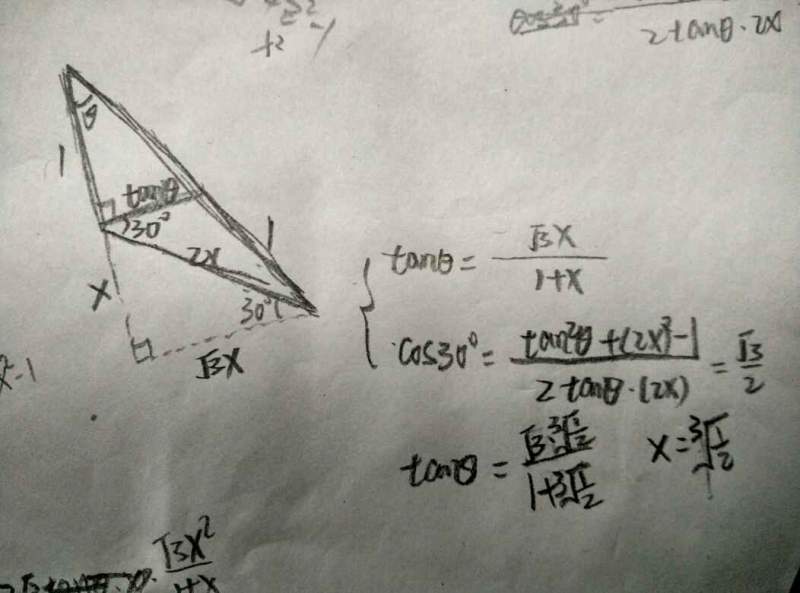 +2 -1
2tanθ·2x
θ
1
tanθ
30°
1
2x
x
30°
√3x
tanθ = √3x / 1+x
cos30° = tan²θ+(2x)²-1 / 2tanθ·(2x) = √3/2
tanθ = √3·³√½ / 1+³√½ x=³√½
x²-1
√3x² / 1+x